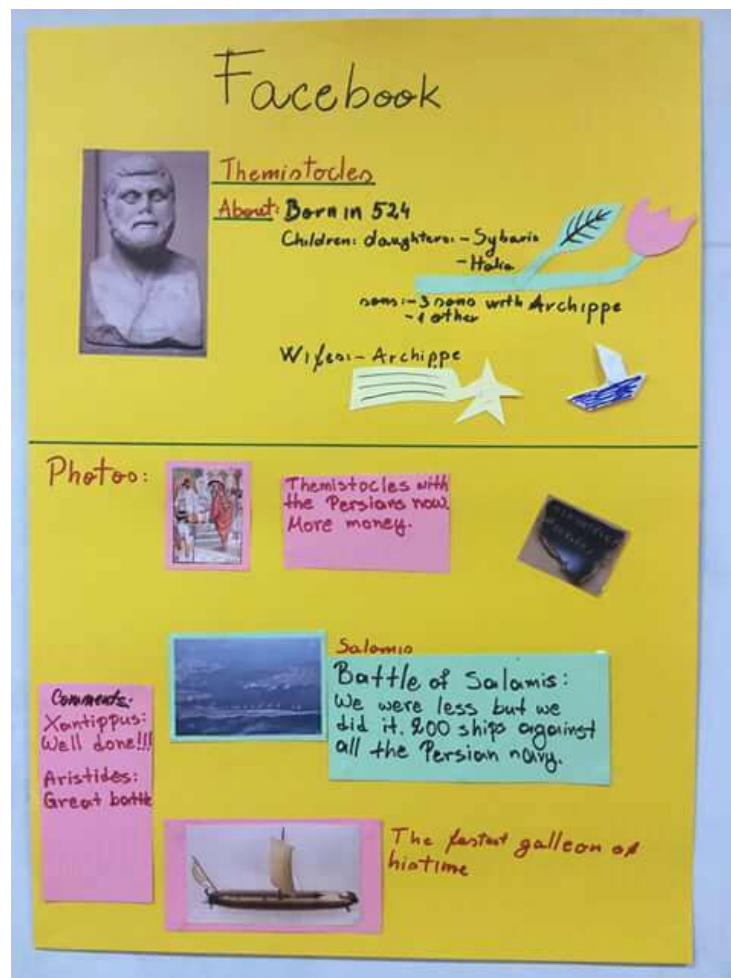 Facebook
Themistocles
About: Born in 524
Children: daughters: - Sybaris
- Italia
sons: - 3 sons with Archippe
- 1 other
Wifes: - Archippe
Photos:
Themistocles with
the Persians now.
More money.
Salamis
Battle of Salamis:
We were less but we
did it. 200 ships against
all the Persian navy.
Comments:
Xantippus:
Well done!!!
Aristides:
Great battle
The fastest galleon of
his time